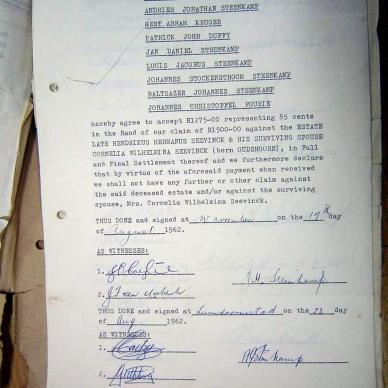 ANDRIES JONATHAN STEENKAMP
GERT ABRAM KRUGER
PATRICK JOHN DUFFY
JAN DANIEL STEENKAMP
LOUIS JACOBUS STEENKAMP
JOHANNES STOCKENSTROOM STEENKAMP
BALTSAZER JOHANNES STEENKAMP
JOHANNES CHRISTOFFEL FOURIE
hereby agree to accept R1275-00 representing 85 cents
in the Rand of our claim of R1500-00 against the ESTATE
LATE HENDRIKUS HERMANUS SEEVINCK & HIS SURVIVING SPOUSE
CORNELIA WILHELMINA SEEVINCK (born OUDSHOORN), in Full
and Final Settlement thereof and we furthermore declare
that by virtue of the aforesaid payment when received
we shall not have any further or other claim against
the said deceased estate and/or against the surviving
spouse, Mrs. Cornelia Wilhelmina Seevinck.
THUS DONE and signed at on the 17 day
of August 1962.
AS WITNESSES:
1.
2. J.H. Steenkamp
THUS DONE and signed at on the 23 day
of Aug 1962.
AS WITNESSES:
1.
2.